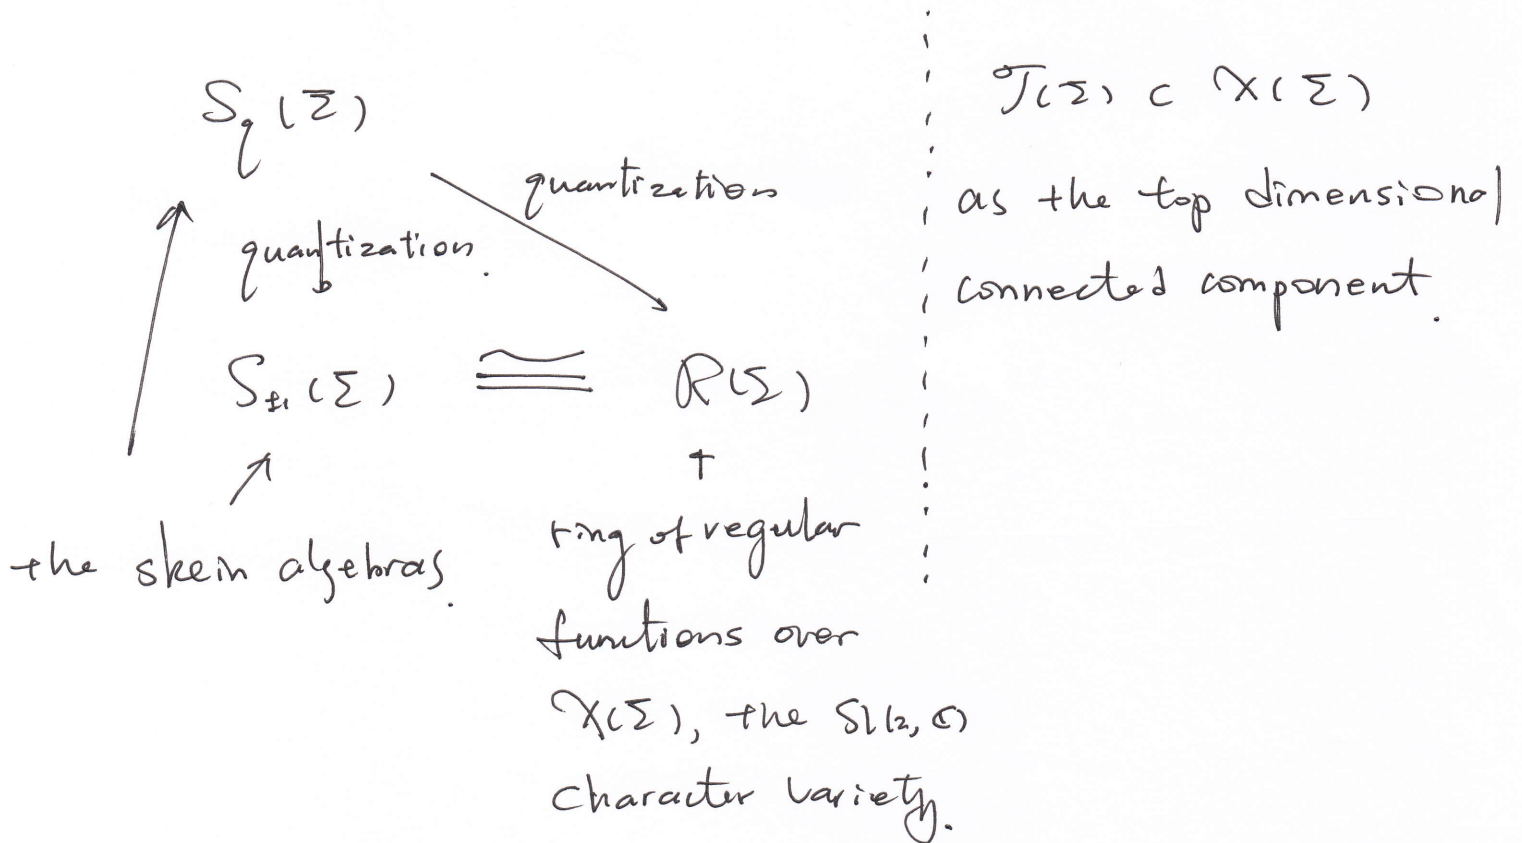 S_q(Σ)
quantization
quantization.
S_{±1}(Σ) ≅ R(Σ)
the skein algebras.
ring of regular
functions over
X(Σ), the Sl(2, C)
character variety.
T(Σ) ⊂ X(Σ)
as the top dimensional
connected component.